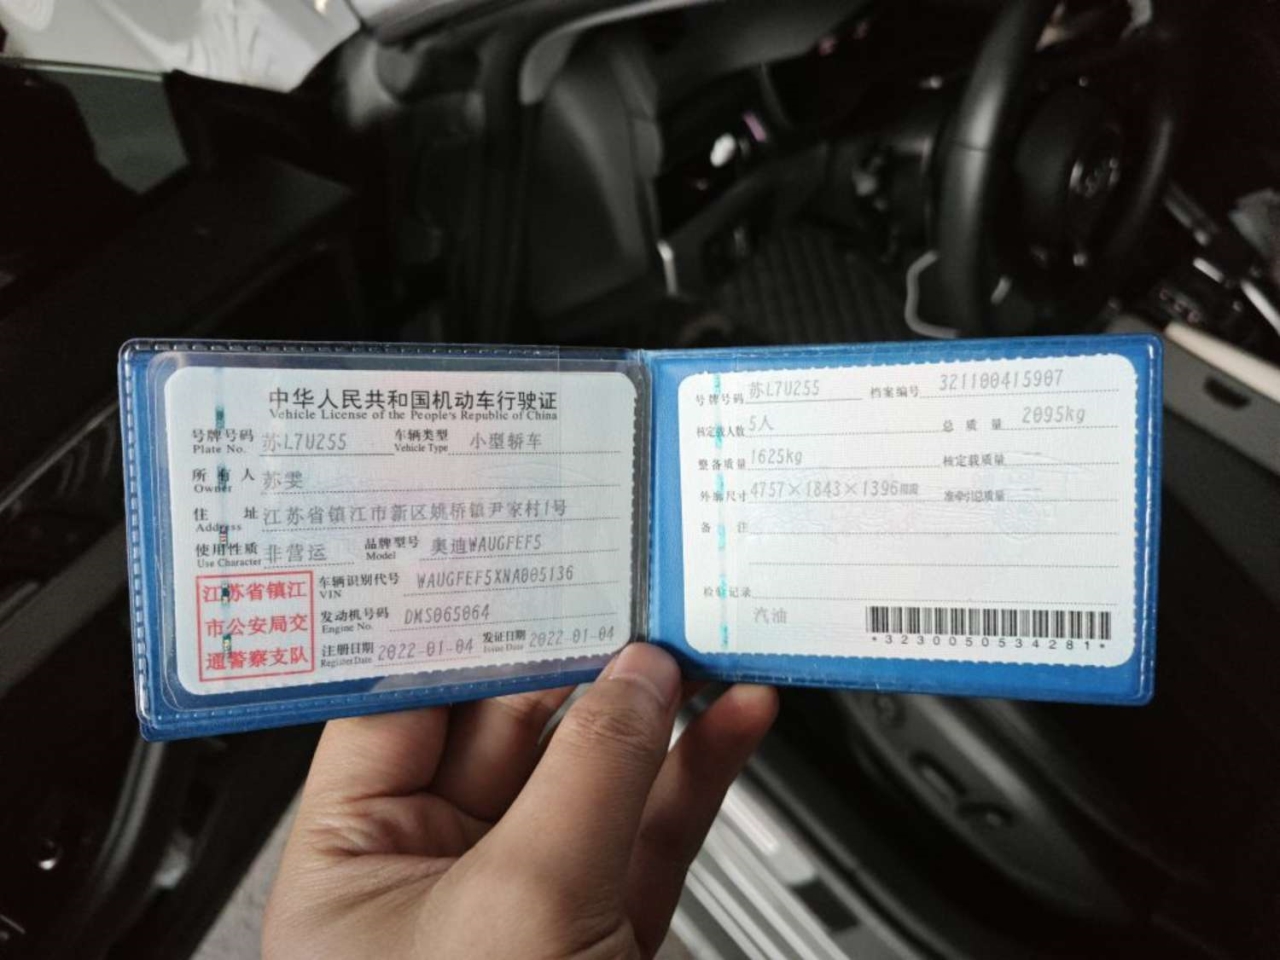 中华人民共和国机动车行驶证
Vehicle License of the People's Republic of China
号牌号码 苏L7U255 车辆类型 小型轿车
Plate No. Vehicle Type
所有人 苏雯
Owner
住址 江苏省镇江市新区姚桥镇尹家村1号
Address
使用性质 非营运 品牌型号 奥迪WAUGFEF5
Use Character Model
江苏省镇江
市公安局交
通警察支队
车辆识别代号 WAUGFEF5XNA005136
VIN
发动机号码 DKS065064
Engine No.
注册日期 2022-01-04 发证日期 2022-01-04
Register Date Issue Date
号牌号码 苏L7U255 档案编号 321100415907
核定载人数 5人 总质量 2095kg
整备质量 1625kg 核定载质量
外廓尺寸 4757×1843×1396mm 准牵引总质量
备注
检验记录
汽油
*3230050534281*